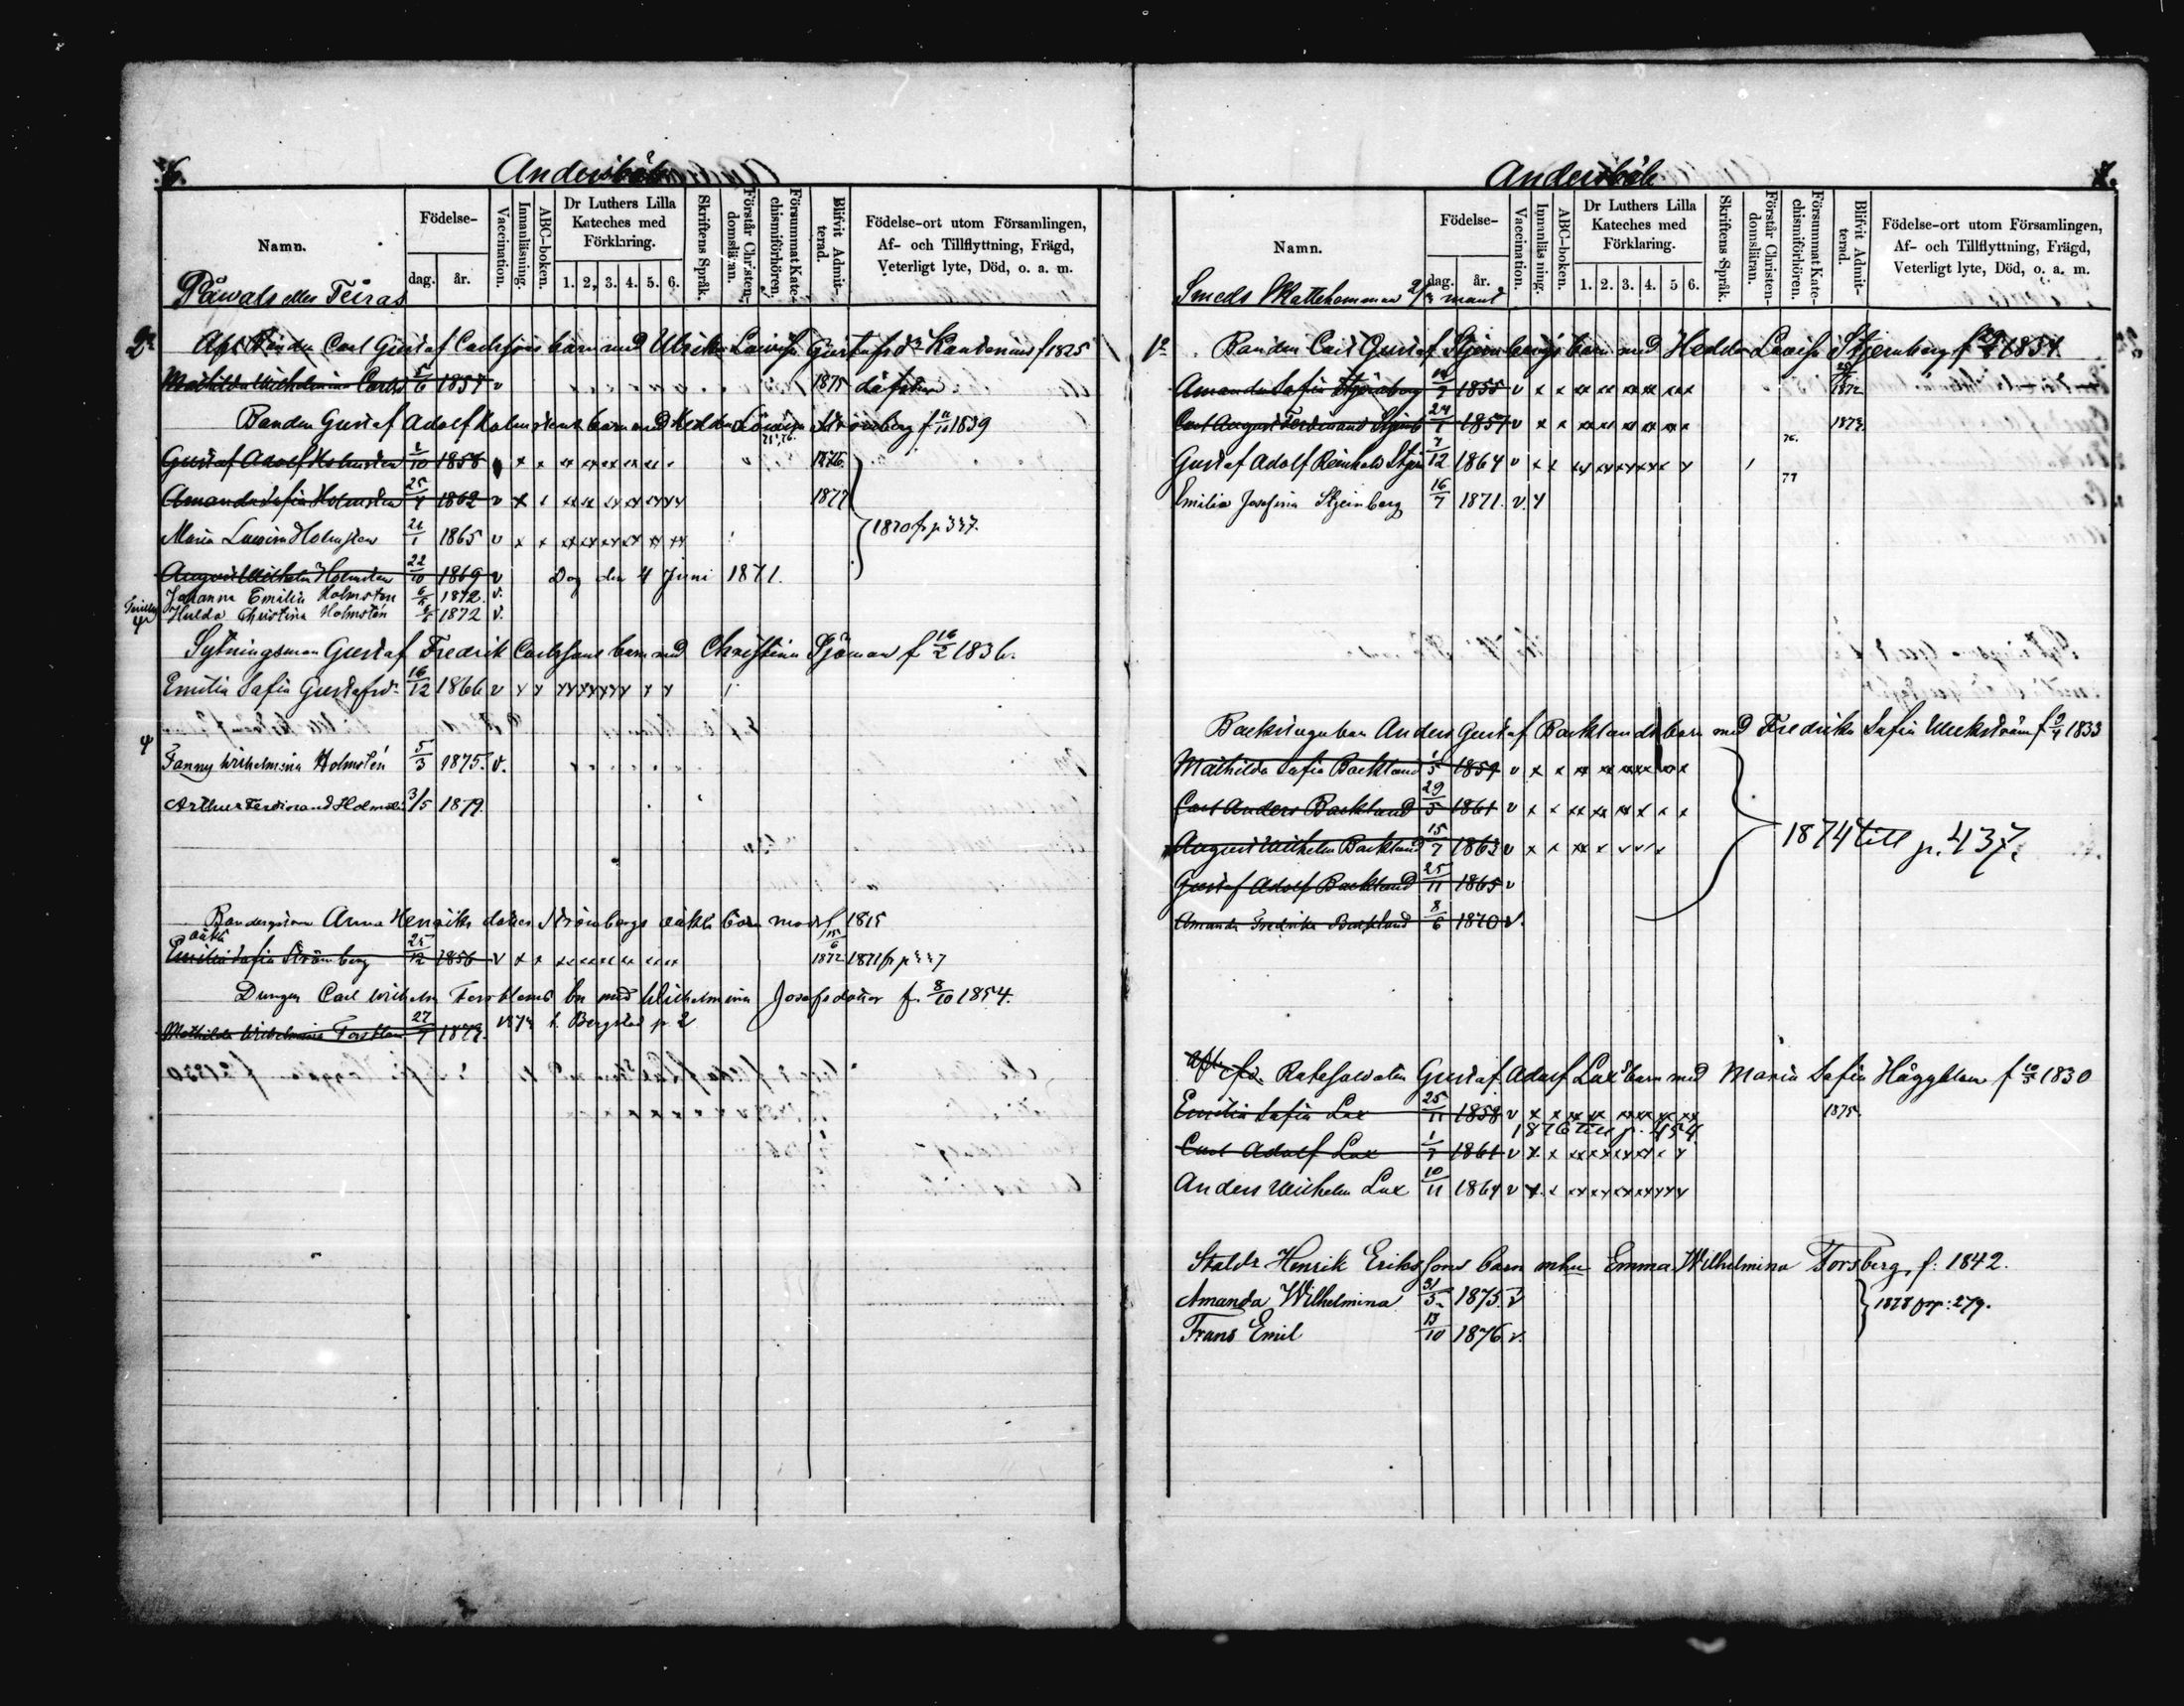 6.
Andersböle
Namn.
Födelse-
dag.
år.
Vaccination.
Innanläsning.
ABC-boken.
Dr Luthers Lilla
Kateches med
Förklaring.
1. 2, 3. 4. 5. 6.
Skriftens Språk.
Förstår Christen-
domsläran.
Försummat Kate-
chismiförhören.
Blifvit Admit-
terad.
Födelse-ort utom Församlingen,
Af- och Tillflyttning, Frägd,
Veterligt lyte, Död, o. a. m.
Påwals eller Teiras
Carl Gustaf Carlssons barn med Ulrika Lovisa Gustafsdr f 1825
Mathilda Wilhelmina Carlsd 5/6 1857 v 1875
Bonden Gustaf Adolf Holmstens barn med Hedda Lovisa Strömberg f 11/10 1839
Gustaf Adolf Holmsten 2/10 1858 1876
Amanda Sofia Holmsten 25/4 1862 v 1877
Maria Lovisa Holmsten 21/1 1865 v 1870 fr p 337.
August Wilhelm Holmsten 22/10 1869 v Dog den 4 Juni 1871.
Johanna Emilia Holmsten 1872. v.
Hulda Christina Holmstén 1872 v.
Sytningsman Gustaf Fredrik Carlssons barn med Christina Sjöman f 16/2 1836.
Emilia Sofia Gustafsdr 16/12 1866 v
Fanny Wilhelmina Holmstén 5/3 1875. v.
Arthur Ferdinand Holmstén 3/5 1879.
Anna Henriks dotter Strömbergs oäkta barn moder f 1815
oäkta
Emilia Sofia Strömberg 25/12 1856 v 15/6 1872 1871 fr p 337
Drengen Carl Wilhelm Forsbloms bn med Wilhelmina Josefsdotter f. 8/10 1854.
Mathilda Wilhelmina Forsblom 27/7 1879. t. Bergstad p. 2
7.
Andersböle
Namn.
Födelse-
dag.
år.
Vaccination.
Innanläsning.
ABC-boken.
Dr Luthers Lilla
Kateches med
Förklaring.
1. 2. 3. 4. 5 6.
Skriftens Språk.
Förstår Christen-
domsläran.
Försummat Kate-
chismiförhören.
Blifvit Admit-
terad.
Födelse-ort utom Församlingen,
Af- och Tillflyttning, Frägd,
Veterligt lyte, Död, o. a. m.
Smeds Skattehemman mantl
Bonden Carl Gustaf Stjernbergs barn med Hedda Lovisa Stjernberg
Amanda Sofia Stjernberg 1855 v 1872
Carl August Ferdinand Stjernb 24/1 1857 v 1873.
76.
Gustaf Adolf Reinhold Stjern 7/12 1864 v
77
Emilia Josefina Stjernberg 16/7 1871. v.
Backstugukarn Anders Gustaf Backlunds barn med Fredrika Sofia f 9/4 1833
Mathilda Sofia Backlund 1859 v
Carl Anders Backlund 29/5 1861 v
1874 till p. 437.
August Wilhelm Backlund 15/7 1863 v
Gustaf Adolf Backlund 25/11 1865 v
Amanda Fredrika Backlund 8/6 1870 v.
fd. Gustaf Adolf Lax' barn med Maria Sofia Häggblom f 10/5 1830
Emilia Sofia Lax 25/11 1858 v 1875.
1876 till p. 454
Carl Adolf Lax 1/7 1861 v
Anders Wilhelm Lax 10/11 1864 v
Henrik Erikssons barn mhu Emma Wilhelmina Forsberg, f. 1842.
Amanda Wilhelmina 31/5 1875. v 1878 fr p: 279.
Frans Emil 13/10 1876 v.